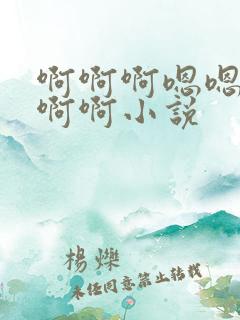 啊啊啊嗯嗯
啊啊小说
杨烁
未经同意禁止转载